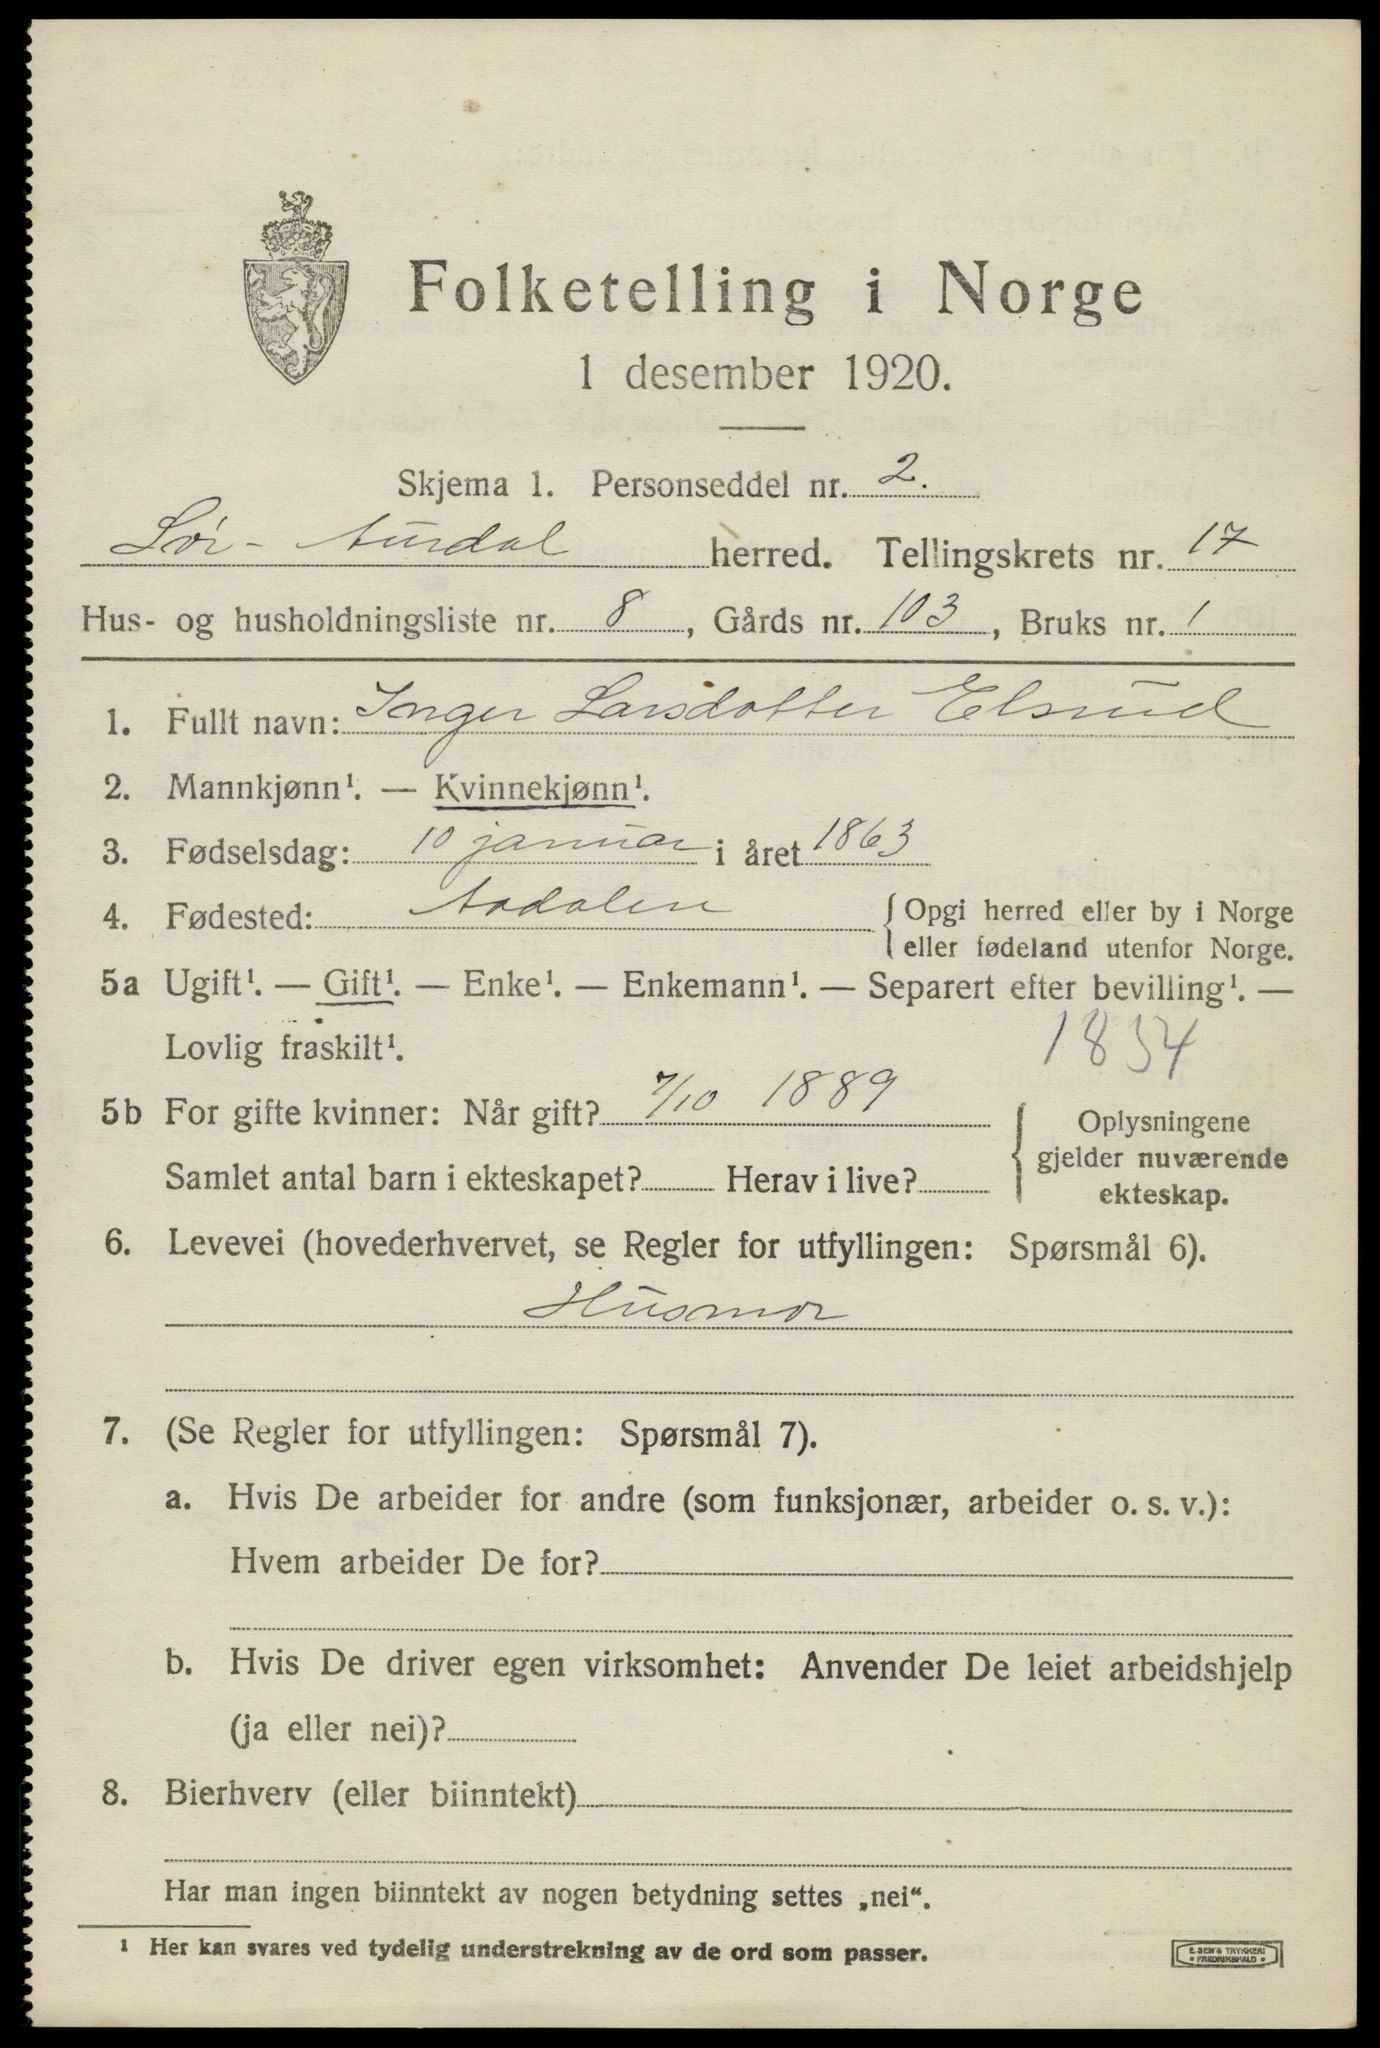 Folketelling i Norge
1 desember 1920.
Skjema 1. Personseddel nr. 2.
Sør-Aurdal herred. Tellingskrets nr. 17
Hus- og husholdningsliste nr. 8, Gårds nr. 103, Bruks nr. 1
1. Fullt navn: Inger Larsdotter Elsrud
2. Mannkjønn¹. — Kvinnekjønn¹.
3. Fødselsdag: 10 januar i året 1863
4. Fødested: Aadalen { Opgi herred eller by i Norge
eller fødeland utenfor Norge.
5a Ugift¹. — Gift¹. — Enke¹. — Enkemann¹. — Separert efter bevilling¹. —
Lovlig fraskilt¹.
1834
5b For gifte kvinner: Når gift? 7/10 1889
Samlet antal barn i ekteskapet? Herav i live?
{ Oplysningene
gjelder nuværende
ekteskap.
6. Levevei (hovederhvervet, se Regler for utfyllingen: Spørsmål 6).
Husmor
7. (Se Regler for utfyllingen: Spørsmål 7).
a. Hvis De arbeider for andre (som funksjonær, arbeider o. s. v.):
Hvem arbeider De for?
b. Hvis De driver egen virksomhet: Anvender De leiet arbeidshjelp
(ja eller nei)?
8. Bierhverv (eller biinntekt)
Har man ingen biinntekt av nogen betydning settes „nei“.
¹ Her kan svares ved tydelig understrekning av de ord som passer.
E. SEM'S TRYKKERI
• FREDRIKSHALD •